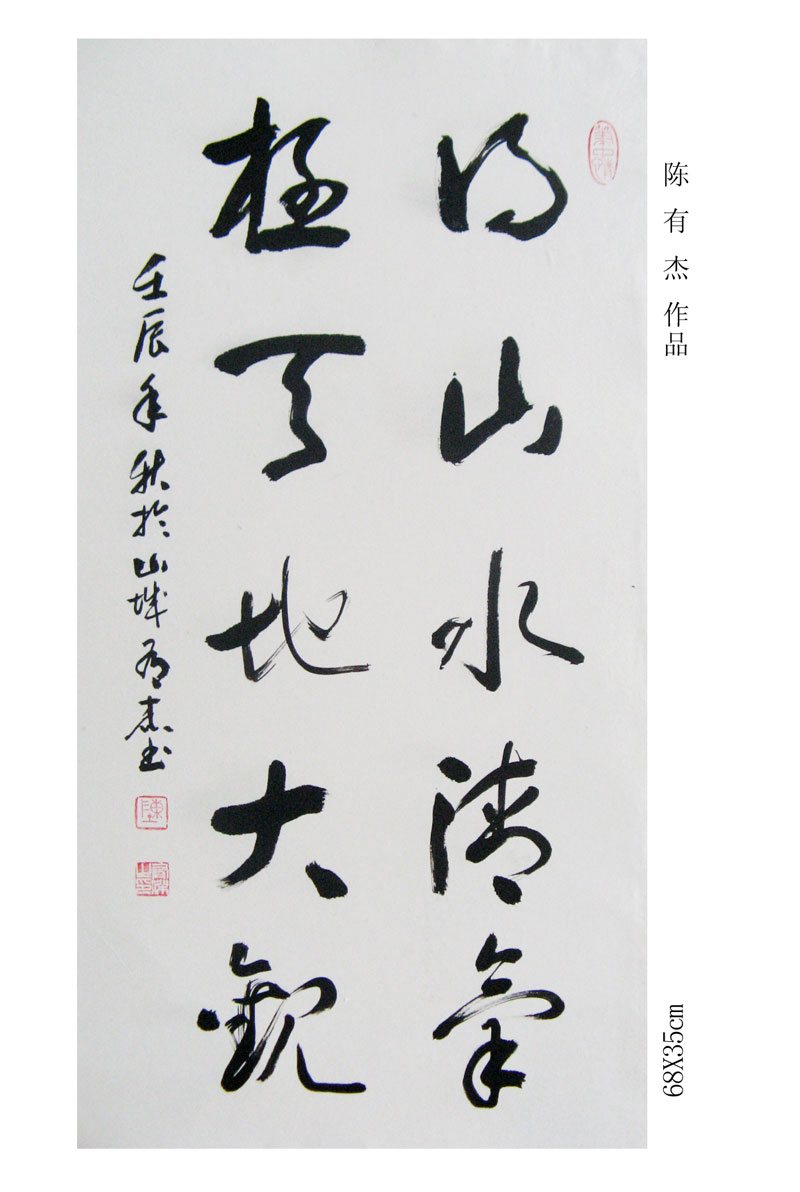 陈有杰作品
得山水清氣
極天地大觀
壬辰年秋於山城有杰书
68X35cm